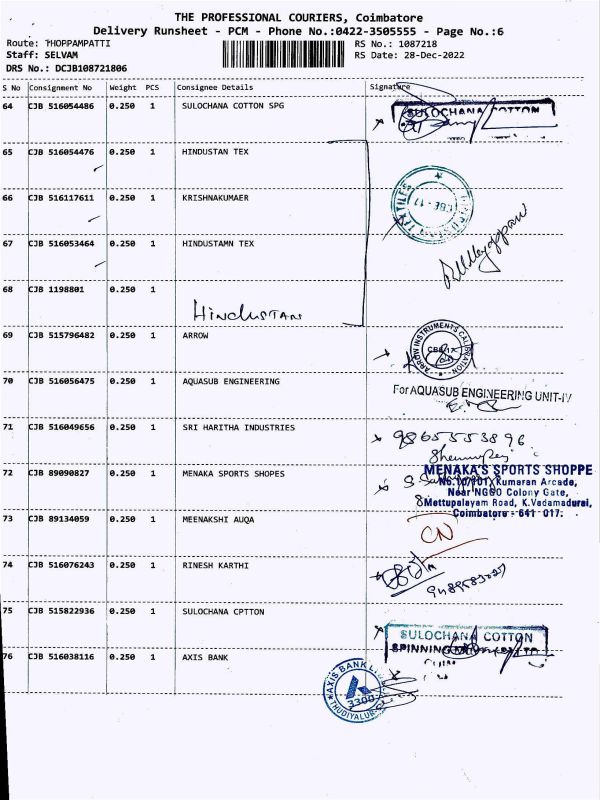 THE PROFESSIONAL COURIERS, Coimbatore
Delivery Runsheet - PCM - Phone No.:0422-3505555 - Page No.:6
Route: THOPPAMPATTI
RS No.: 1087218
Staff: SELVAM
RS Date: 28-Dec-2022
DRS No.: DCJB108721806
S No Consignment No Weight PCS Consignee Details Signature
64 CJB 516054486 0.250 1 SULOCHANA COTTON SPG
SULOCHANA COTTON
65 CJB 516054476 0.250 1 HINDUSTAN TEX
66 CJB 516117611 0.250 1 KRISHNAKUMAER
67 CJB 516053464 0.250 1 HINDUSTAMN TEX
68 CJB 1198801 0.250 1
HINDUSTAN
69 CJB 515796482 0.250 1 ARROW
ARROW INSTRUMENTS CALIBRATION
70 CJB 516056475 0.250 1 AQUASUB ENGINEERING
For AQUASUB ENGINEERING UNIT-IV
71 CJB 516049656 0.250 1 SRI HARITHA INDUSTRIES
9865553896
72 CJB 89090827 0.250 1 MENAKA SPORTS SHOPES
MENAKA'S SPORTS SHOPPE
Kumaran Arcade,
Near NGGO Colony Gate,
Mettupalayam Road, K.Vadamadurai,
Coimbatore - 641 017.
73 CJB 89134059 0.250 1 MEENAKSHI AUQA
CN
74 CJB 516076243 0.250 1 RINESH KARTHI
75 CJB 515822936 0.250 1 SULOCHANA CPTTON
SULOCHANA COTTON
SPINNING
76 CJB 516038116 0.250 1 AXIS BANK
AXIS BANK
3300
THUDIYALUR